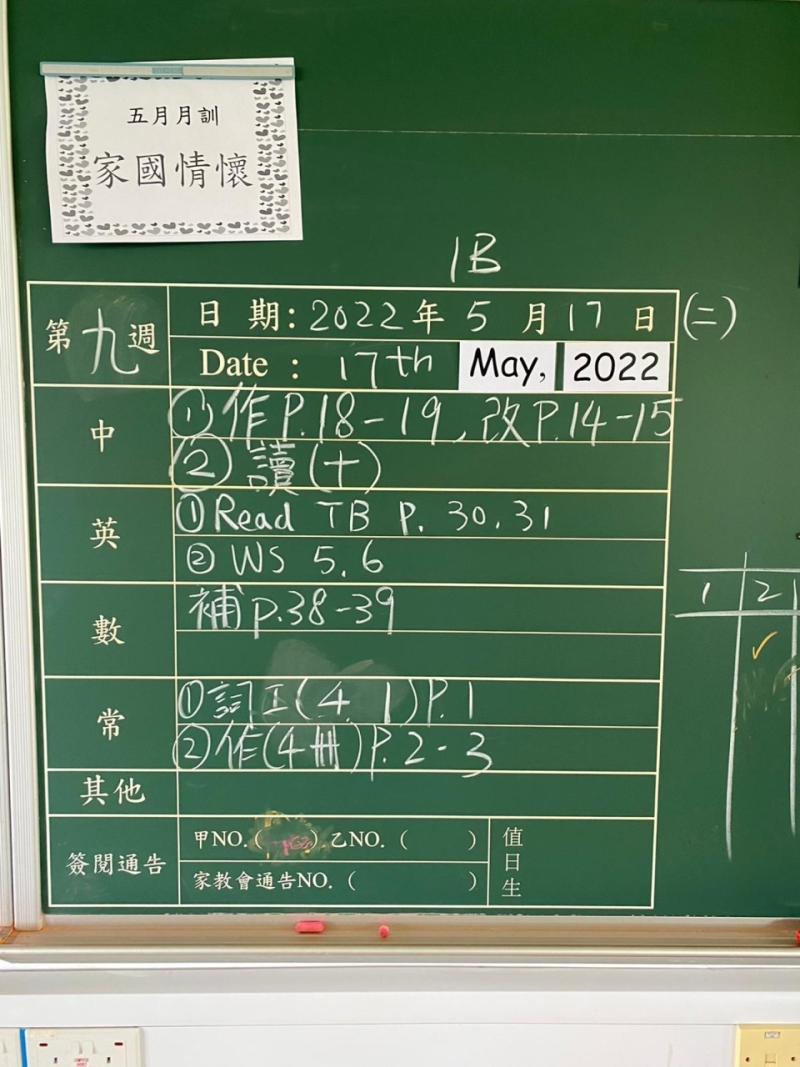 五月月訓
家國情懷
1B
第九週
日期:2022年5月17日(二)
Date : 17th May, 2022
中
① 作P.18-19,改P.14-15
② 讀(十)
英
① Read TB P. 30,31
② WS 5,6
數
補p.38-39
常
① 詞工(4.1)P.1
② 作(4冊)P.2-3
其他
簽閱通告
甲NO.( ) 乙NO.( )
家教會通告NO.( )
值日生
1 2